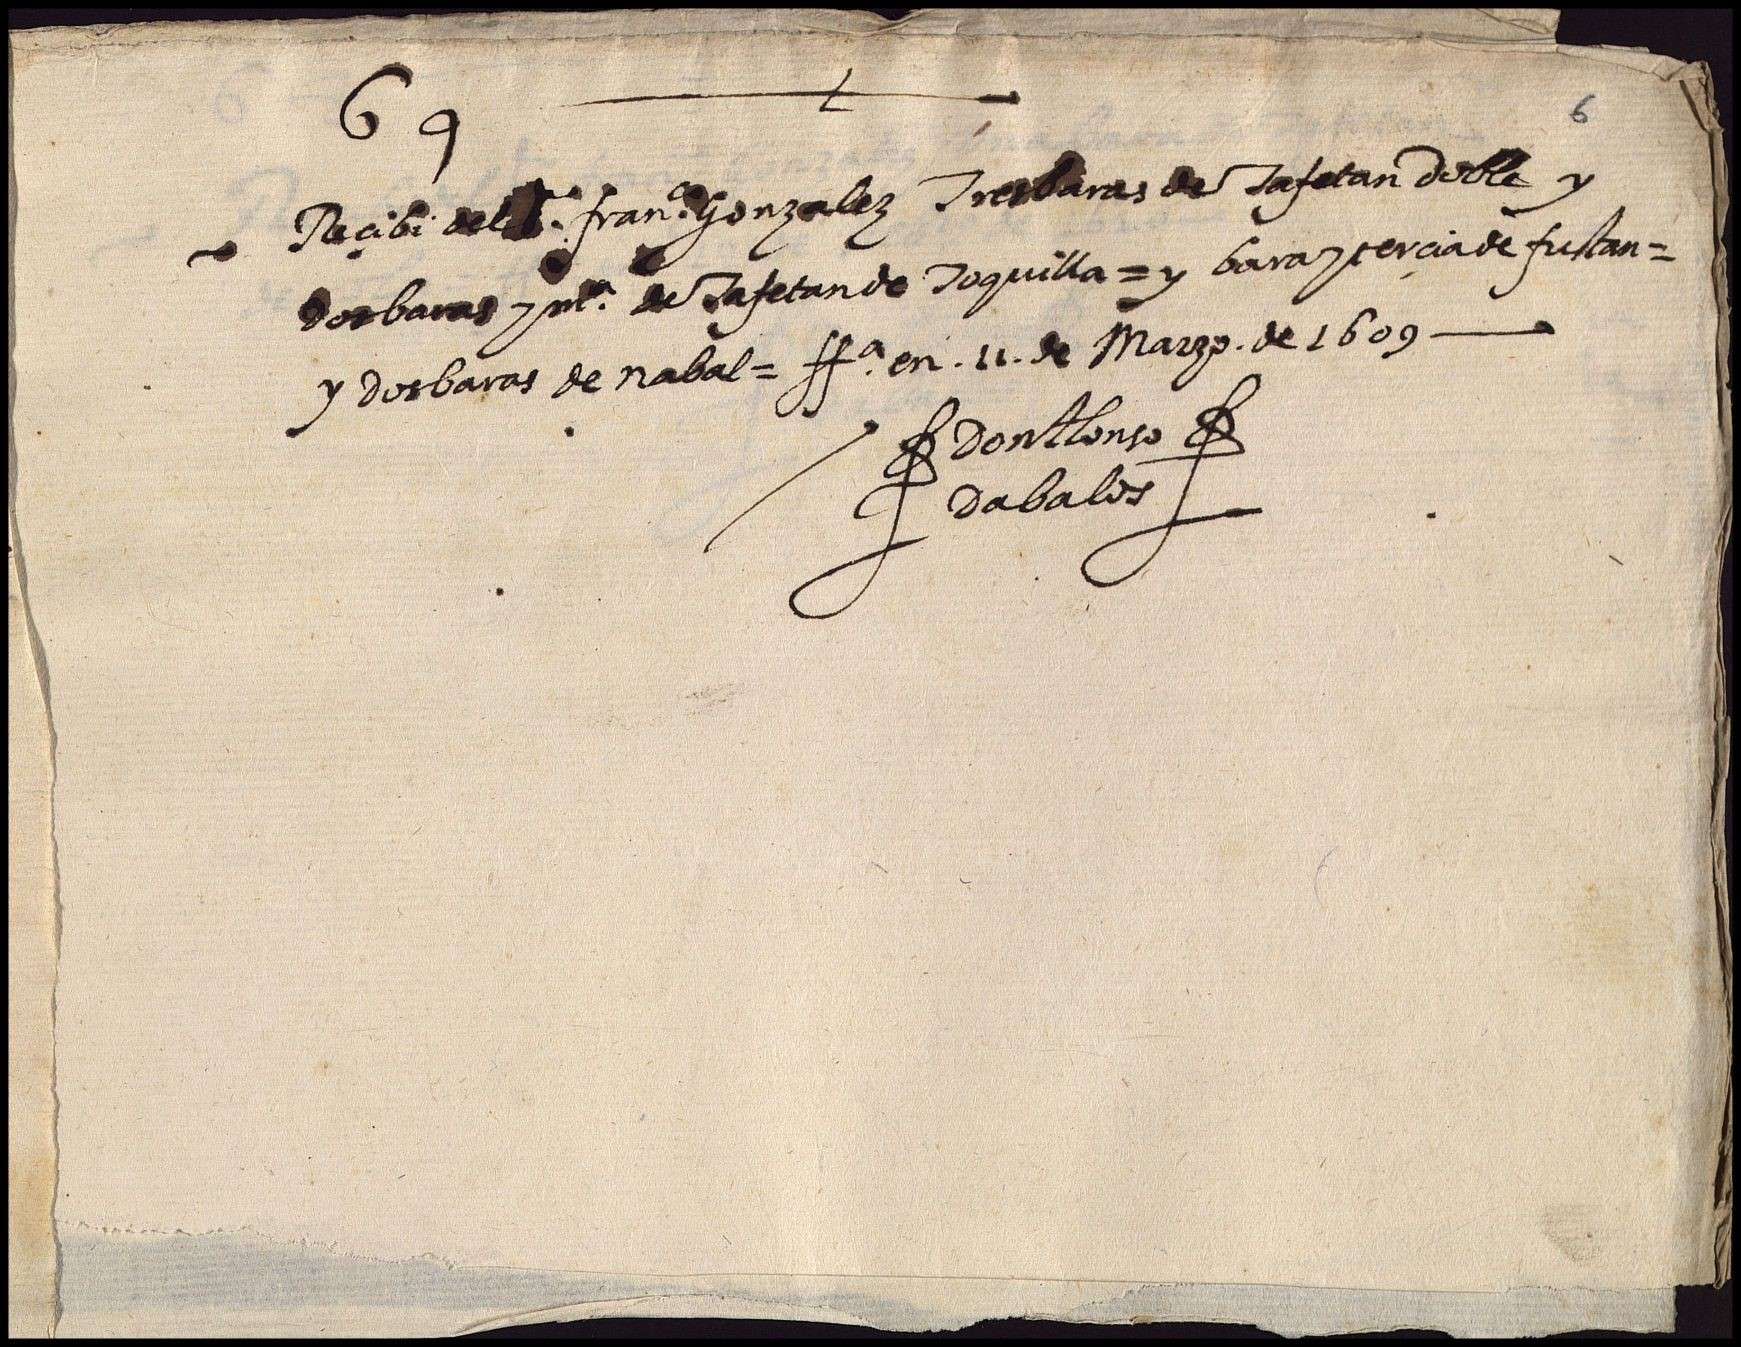 6 9
6
Reçibi del Sr. franco. gonzalez Tres baras de Tafetan doble y
dos baras y ma. de Tafetan de Toquilla = y bara y tercia de fustan =
y dos baras de nabal = ffa. en. 11. de Marzo. de 1609
Don Alonso
Dabalos